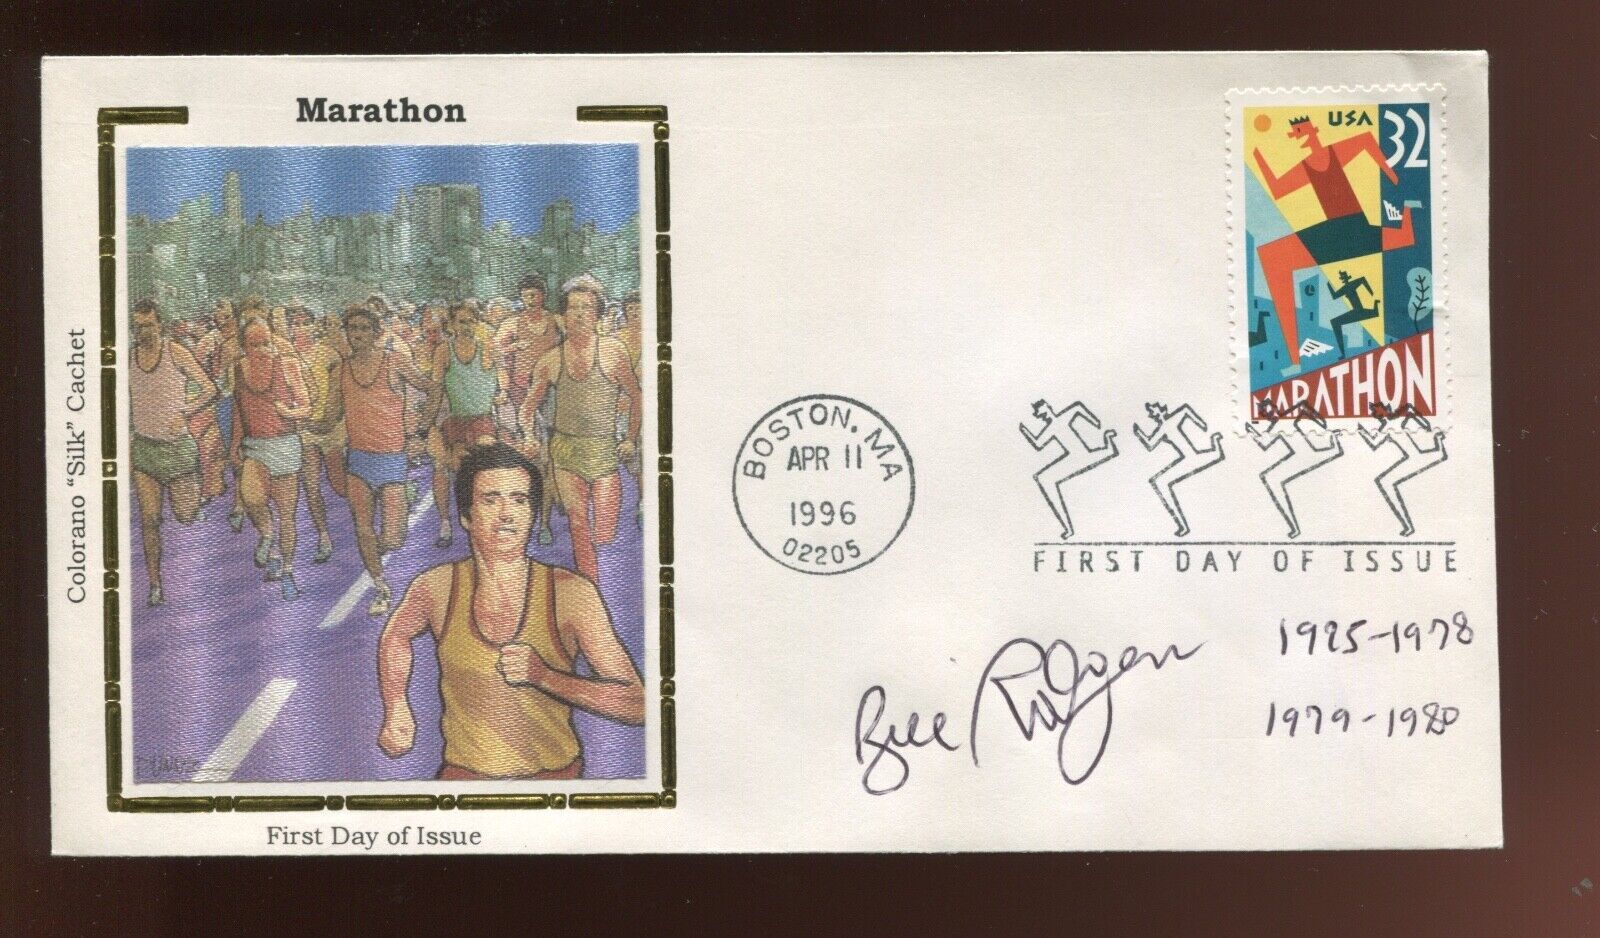 Marathon
Colorano "Silk" Cachet
First Day of Issue
USA 32
MARATHON
BOSTON, MA
APR 11
1996
02205
FIRST DAY OF ISSUE
Bill Rodgers
1975-1978
1979-1980